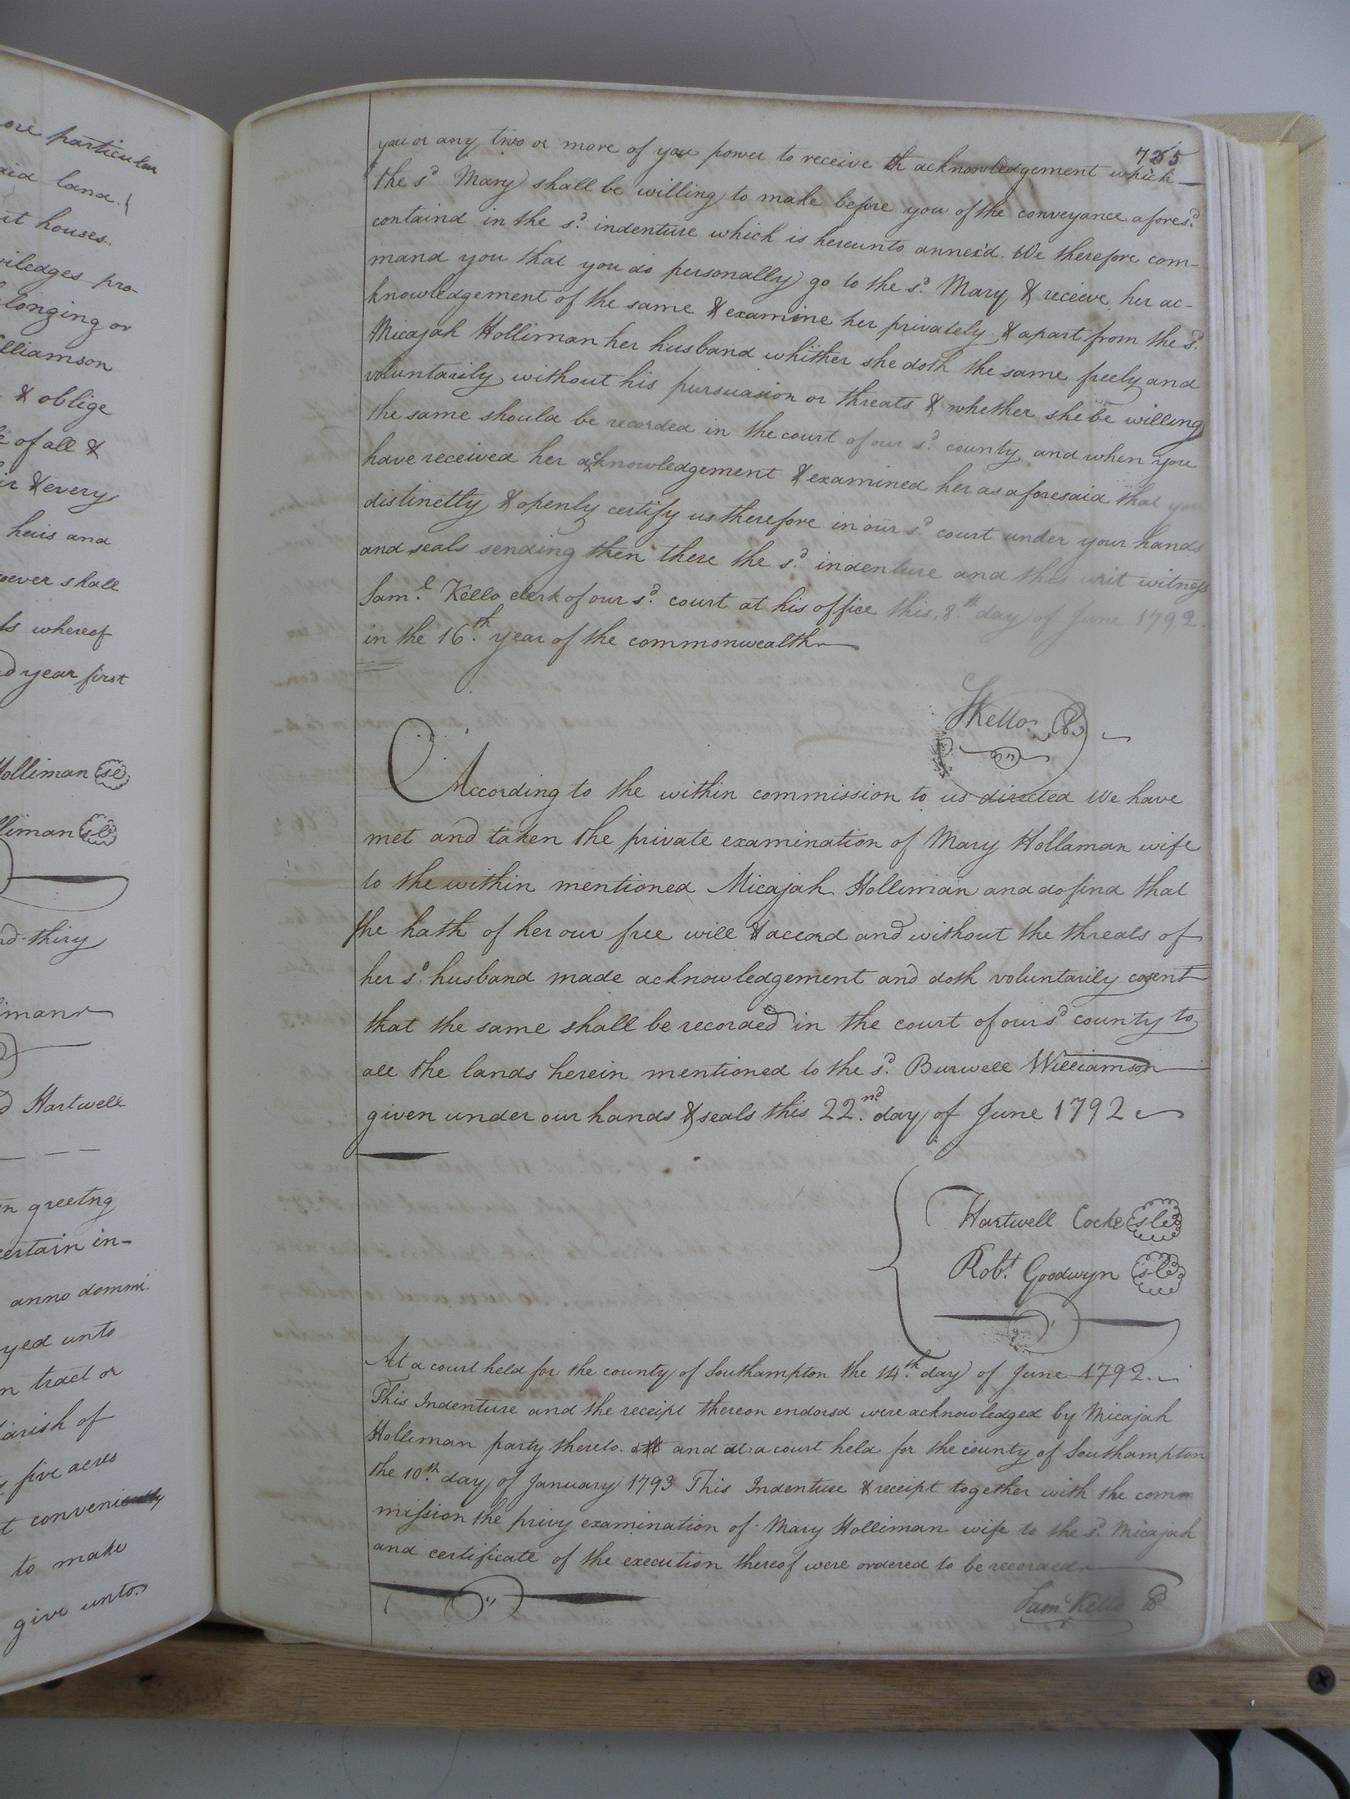 ore particular
aid land.
it houses.
viledges pro-
longing or
lliamson
& oblige
e of all &
ir & every
heirs and
soever shall
ts whereof
d year first
Holliman
lliman
nd thiry
limanr
d Hartwell
n greetng
certain in-
anno domini.
yed unto
n tract or
arish of
five acres
t conveniently
to make
give unto.
755
you or any two or more of you power to receive th acknowledgement which
the sd. Mary shall be willing to make before you of the conveyance aforesd.
containd in the sd. indenture which is hereunto annex'd. We therefore com-
mand you that you do personally go to the sd. Mary & receive her ac-
knowledgement of the same & examine her privately & apart from the sd.
Micajah Holliman her husband whither she doth the same freely and
voluntarily without his pursuasion or threats & whether she be willing
the same should be recorded in the court of our sd. county and when you
have received her acknowledgement & examined her as aforesaid that you
distinctly & openly certify us therefore in our sd. court under your hands
and seals sending then there the sd. indenture and this writ witness
Saml. Kello clerk of our sd. court at his office this 8th day of June 1792.
in the 16th. year of the commonwealth
SKello
According to the within commission to us directed We have
met and taken the private examination of Mary Hollaman wife
to the within mentioned Micajah Holliman and do find that
she hath of her our free will & accord and without the threats of
her sd. husband made acknowledgement and doth voluntarily cosent
that the same shall be recorded in the court of our sd county to
all the lands herein mentioned to the sd. Burwell Williamson
given under our hands & seals this 22.nd day of June 1792
Hartwell Cocke
Robt. Goodwyn
At a court held for the county of Southampton the 14th. day of June 1792.
This Indenture and the receipt thereon endorsd were acknowledged by Micajah
Holliman party thereto. and at a court held for the county of Southampton
the 10th. day of January 1793 This Indenture & receipt together with the com
mission the privy examination of Mary Holliman wife to the sd. Micajah
and certificate of the execution thereof were ordered to be recorded
Sam Kello